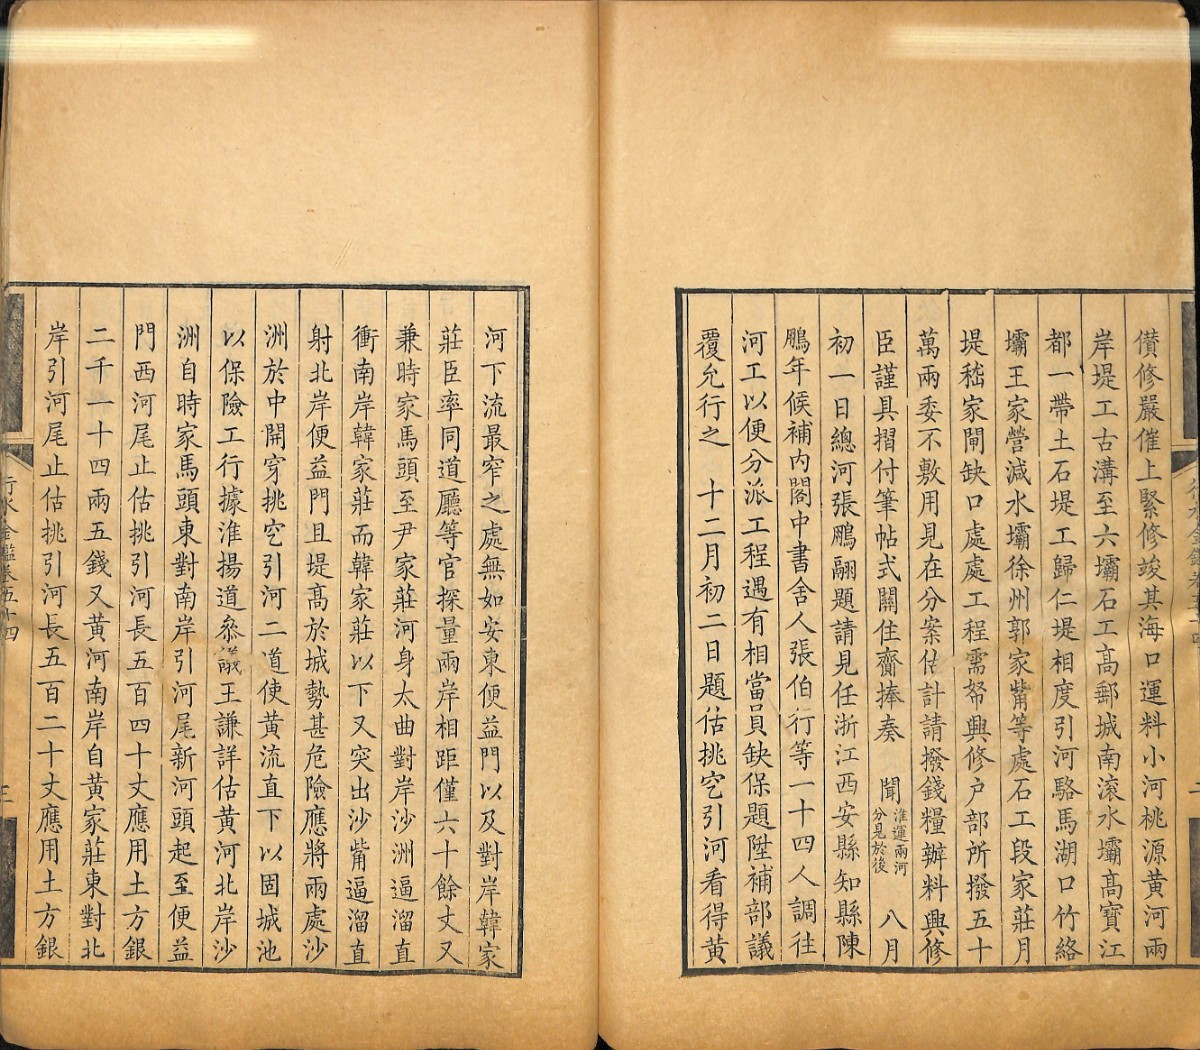 儹修嚴催上緊修竣其海口運料小河桃源黃河兩
岸堤工古溝至六壩石工高郵城南滾水壩高寶江
都一帶土石堤工歸仁堤相度引河駱馬湖口竹絡
壩王家營減水壩徐州郭家觜等處石工段家莊月
堤嵇家閘缺口處處工程需帑興修户部所撥五十
萬兩委不敷用見在分案估計請撥錢糧辦料興修
臣謹具摺付筆帖式關住齎捧奏 聞淮運兩河分見於後 八月
初一日總河張鵬翮題請見任浙江西安縣知縣陳
鵬年候補內閣中書舍人張伯行等一十四人調往
河工以便分派工程遇有相當員缺保題陞補部議
覆允行之 十二月初二日題估挑空引河看得黃
河下流最窄之處無如安東便益門以及對岸韓家
莊臣率同道廳等官探量兩岸相距僅六十餘丈又
兼時家馬頭至尹家莊河身太曲對岸沙洲逼溜直
衝南岸韓家莊而韓家莊以下又突出沙觜逼溜直
射北岸便益門且堤高於城勢甚危險應將兩處沙
洲於中開穿挑空引河二道使黃流直下以固城池
以保險工行據淮揚道叅議王謙詳估黃河北岸沙
洲自時家馬頭東對南岸引河尾新河頭起至便益
門西河尾止估挑引河長五百四十丈應用土方銀
二千一十四兩五錢又黃河南岸自黃家莊東對北
岸引河尾止估挑引河長五百二十丈應用土方銀
行水金鑑卷五十四
三